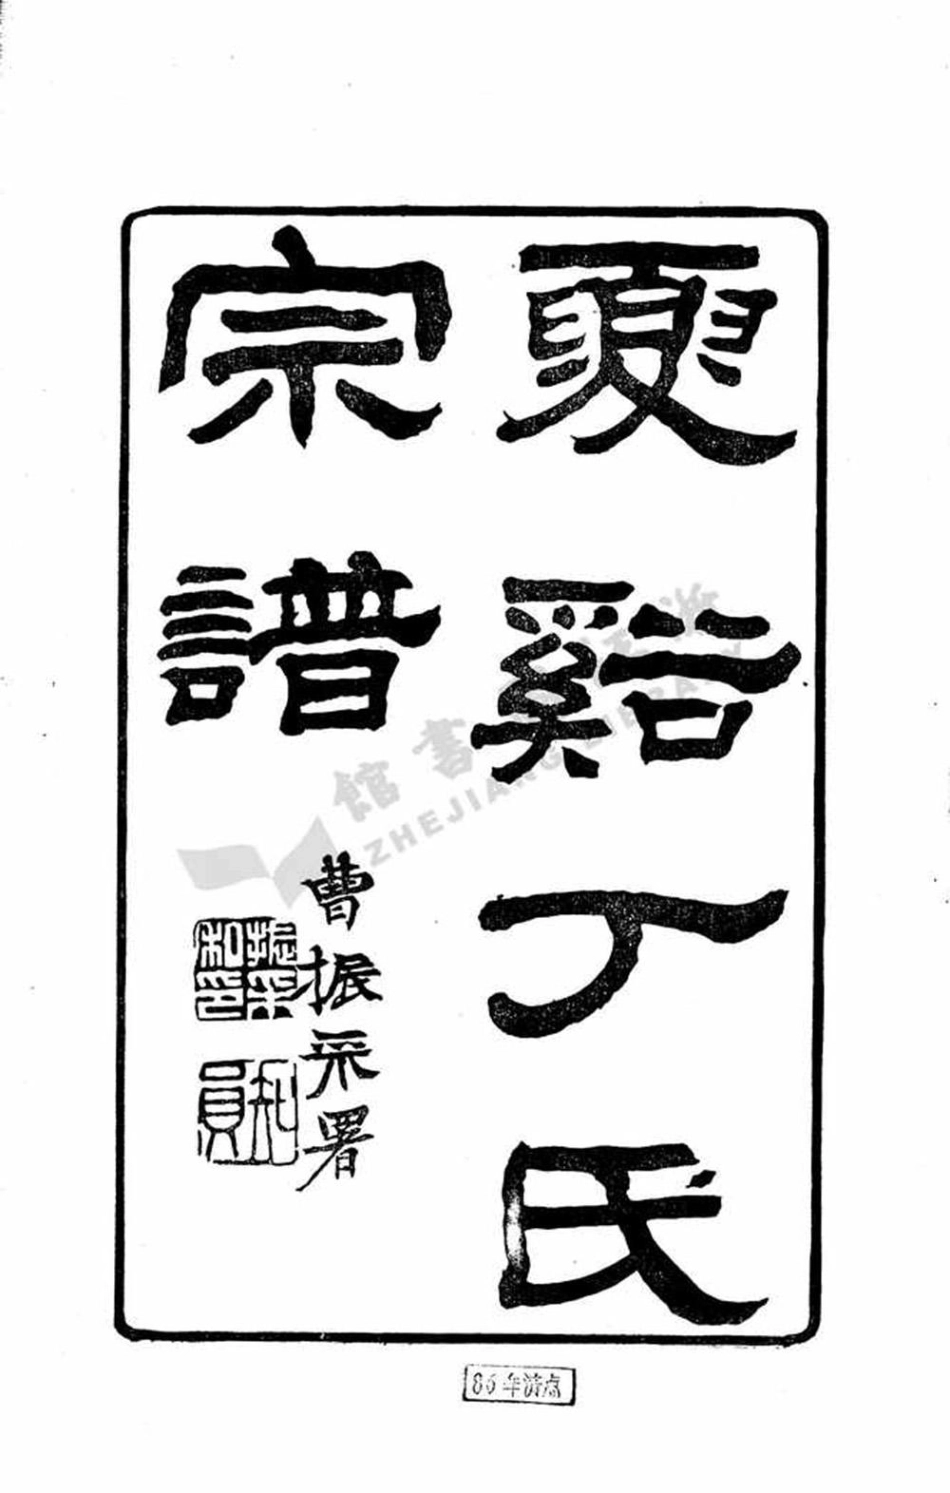 夏谿丁氏
宗譜
曹振采署
浙江圖書館
ZHEJIANG LIBRARY
86年清点